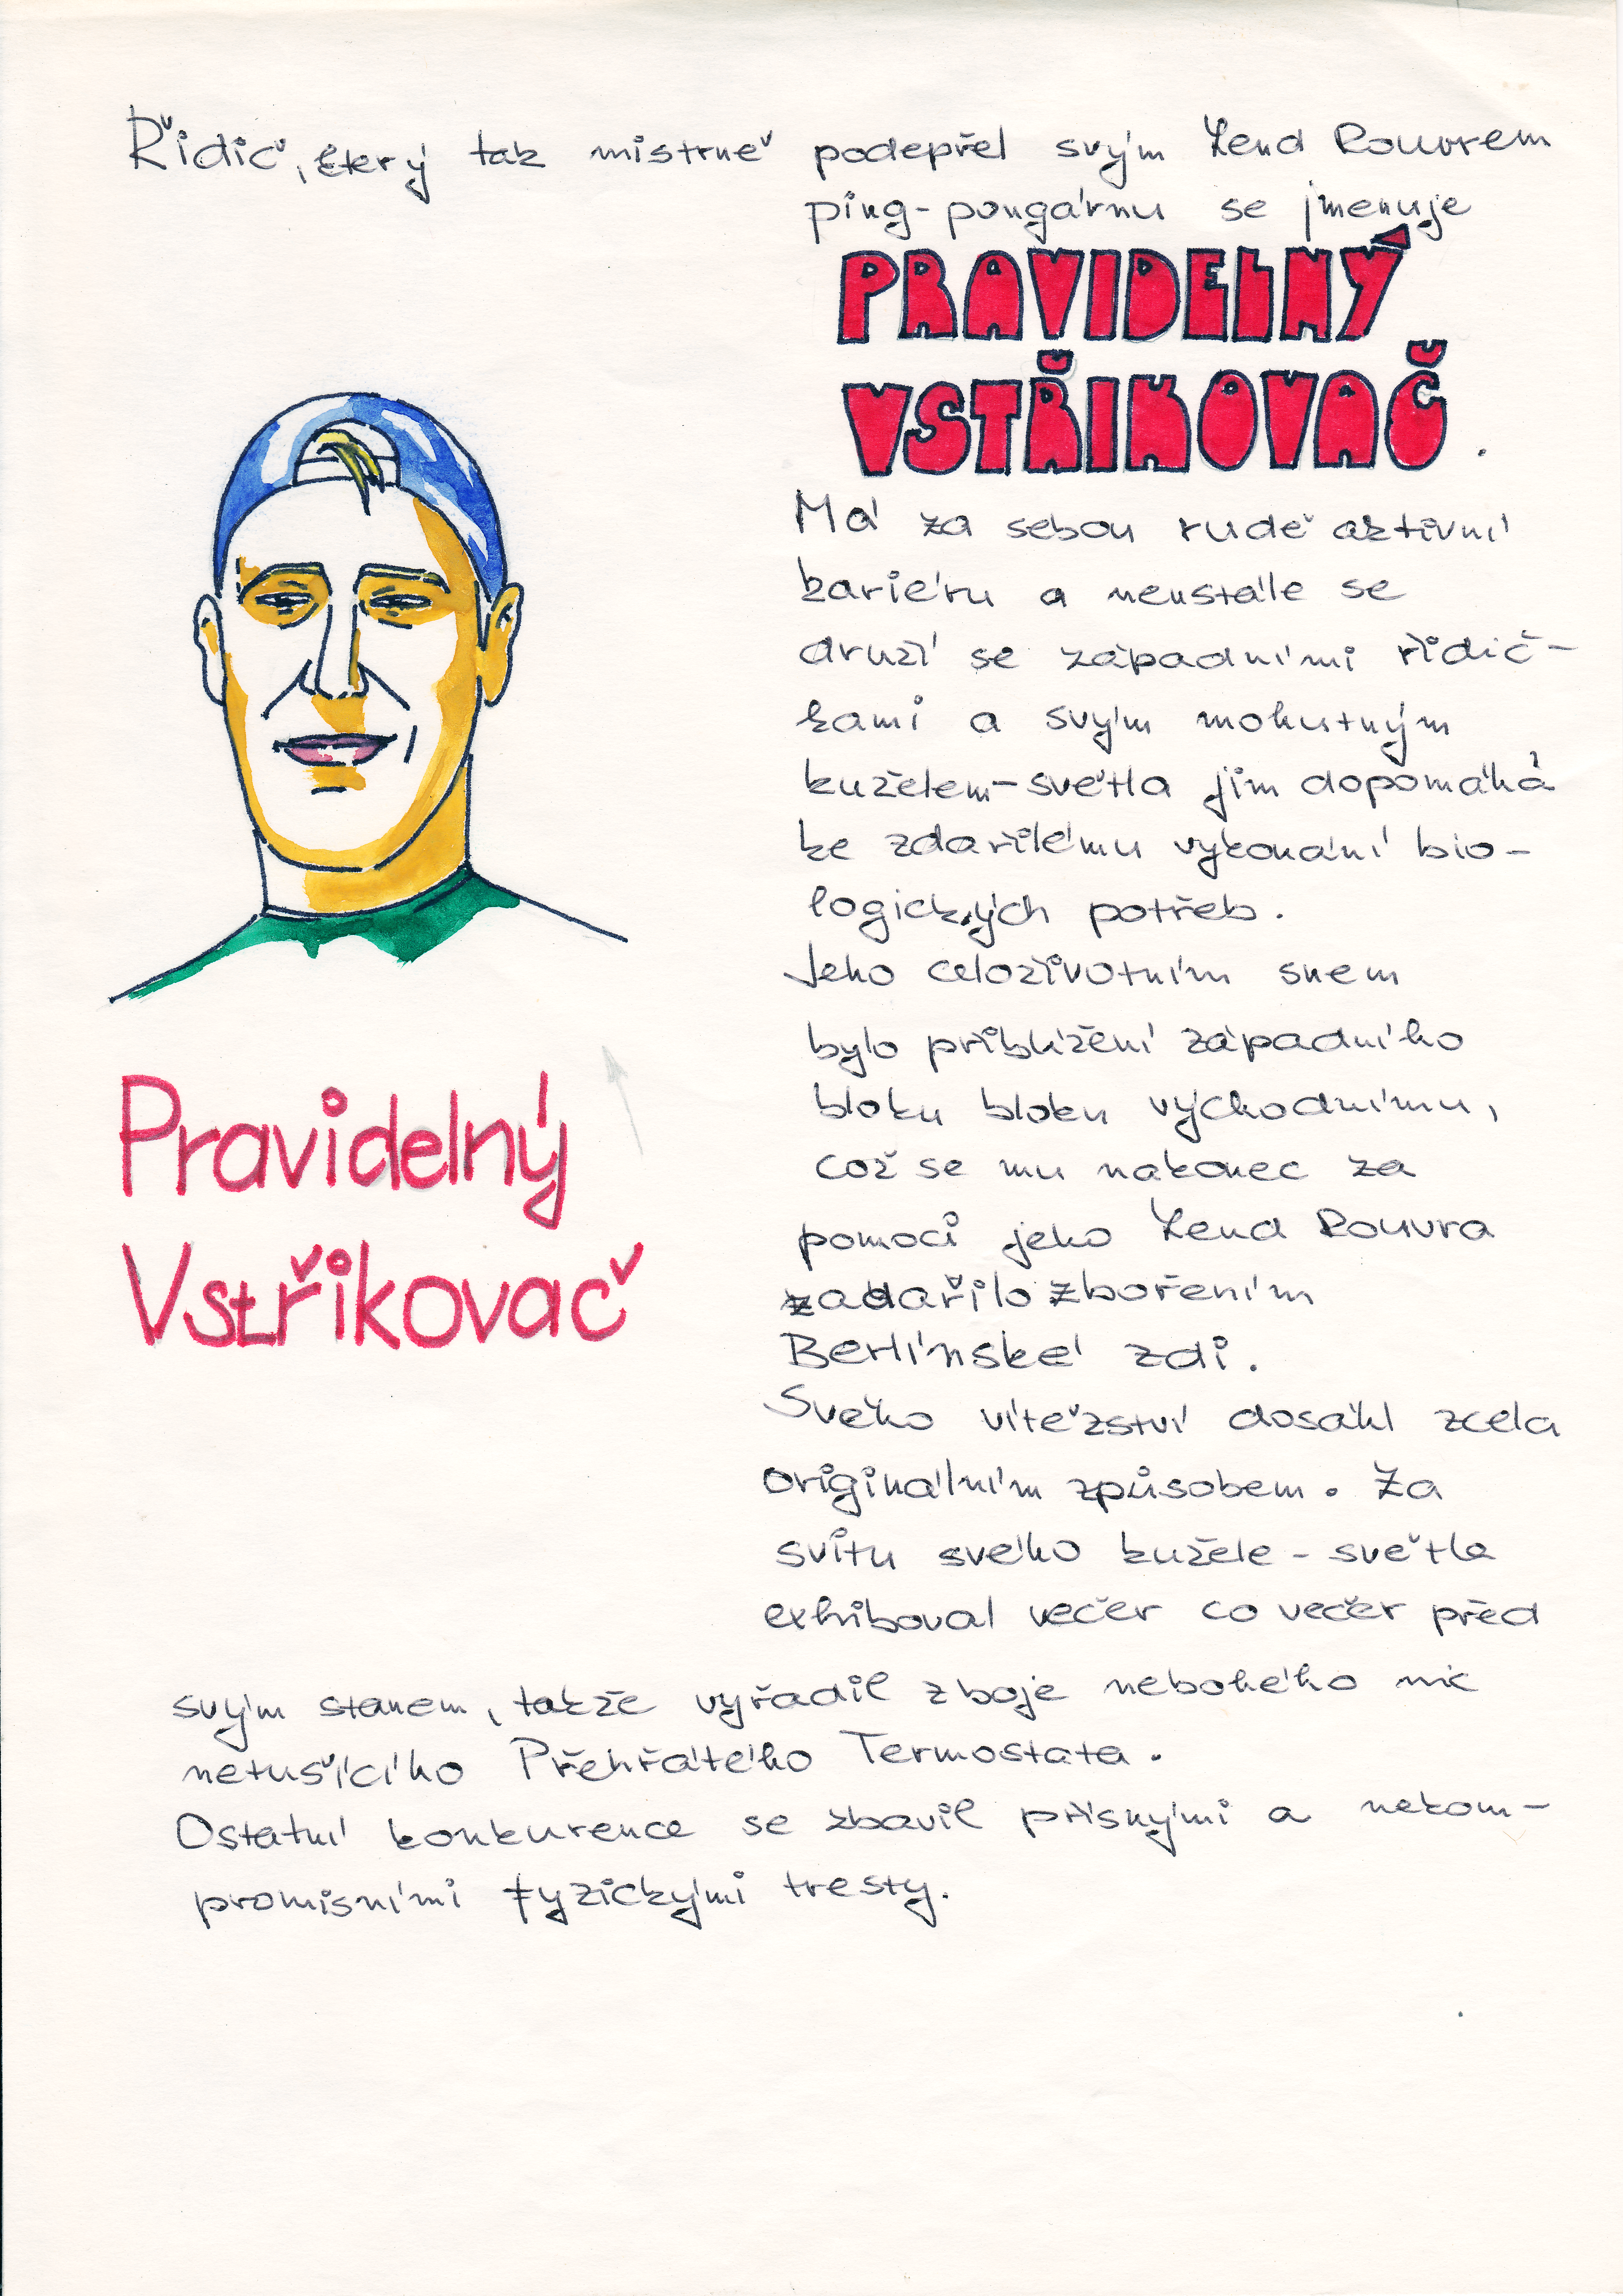 Řidič, který tak mistrně podepřel svým Lend Rouvrem
ping-pongárnu se jmenuje
PRAVIDELNÝ
VSTŘIKOVAČ.
Má za sebou rudě aktivní
kariéru a neustále se
druží se západními řidič-
kami a svým mohutným
kuželem-světla jim dopomáhá
ke zdařilému vykonání bio-
logických potřeb.
Jeho celoživotním snem
bylo přiblížení západního
bloku bloku východnímu,
což se mu nakonec za
pomoci jeho Lend Rouvra
zadařilo zbořením
Berlínské zdi.
Svého vítězství dosáhl zcela
originálním způsobem. Za
svitu svého kužele-světla
exhiboval večer co večer před
svým stanem, takže vyřadil z boje nebohého nic
netušícího Přehřátého Termostata.
Ostatní konkurence se zbavil přísnými a nekom-
promisními fyzickými tresty.
Pravidelný
Vstřikovač